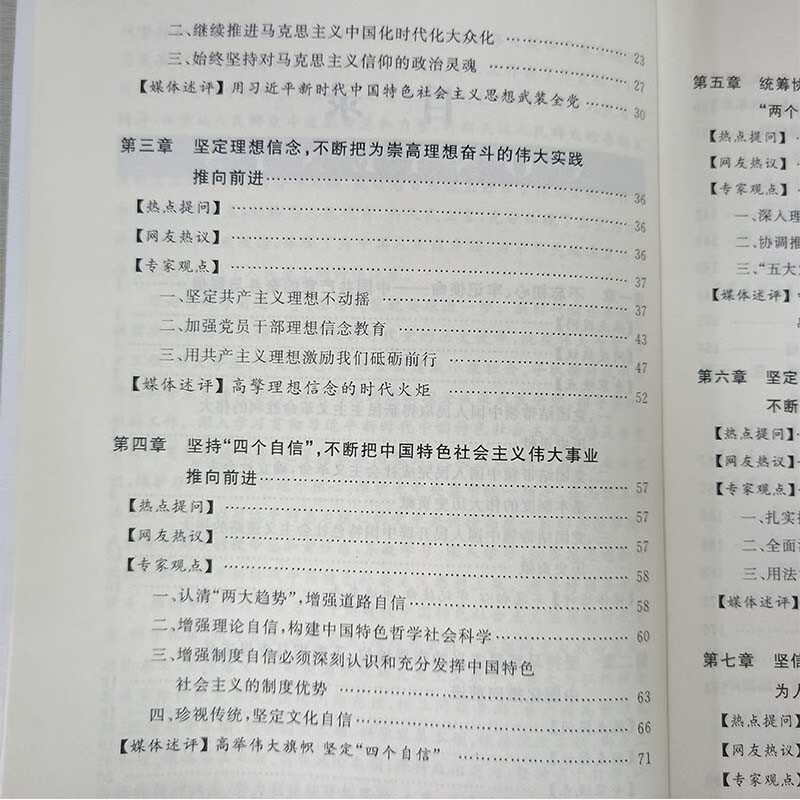 二、继续推进马克思主义中国化时代化大众化 …………… 23
三、始终坚持对马克思主义信仰的政治灵魂 …………… 27
【媒体述评】用习近平新时代中国特色社会主义思想武装全党 …… 30
第三章 坚定理想信念，不断把为崇高理想奋斗的伟大实践
推向前进…………… 36
【热点提问】…………… 36
【网友热议】…………… 36
【专家观点】…………… 37
一、坚定共产主义理想不动摇 …………… 37
二、加强党员干部理想信念教育 …………… 43
三、用共产主义理想激励我们砥砺前行 …………… 47
【媒体述评】高擎理想信念的时代火炬 …………… 52
第四章 坚持“四个自信”，不断把中国特色社会主义伟大事业
推向前进…………… 57
【热点提问】…………… 57
【网友热议】…………… 57
【专家观点】…………… 58
一、认清“两大趋势”，增强道路自信…………… 58
二、增强理论自信，构建中国特色哲学社会科学…………… 60
三、增强制度自信必须深刻认识和充分发挥中国特色
社会主义的制度优势 …………… 63
四、珍视传统，坚定文化自信…………… 66
【媒体述评】高举伟大旗帜 坚定“四个自信” …………… 71
第五章 统筹
“两个
【热点提问】
【网友热议】
【专家观点】
一、深入理
二、协调推
三、“五大
【媒体述评】
第六章 坚定
不断
【热点提问】
【网友热议】
【专家观点】
一、扎实
二、全面
三、用法
【媒体述评】
第七章 坚
为人
【热点提问】
【网友热议】
【专家观点】